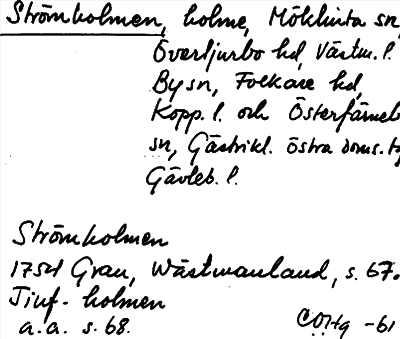 Strömholmen, holme, Möklinta sn,
Övertjurbo hd, Västm. l.
By sn, Folkare hd,
Kopp. l. och Österfärneb
sn, Gästrikl. östra doms. t
Gävleb. l.
Strömholmen
1754 Grau, Wästmanland, s. 67.
Tiuf- holmen
a.a. s. 68.
-61